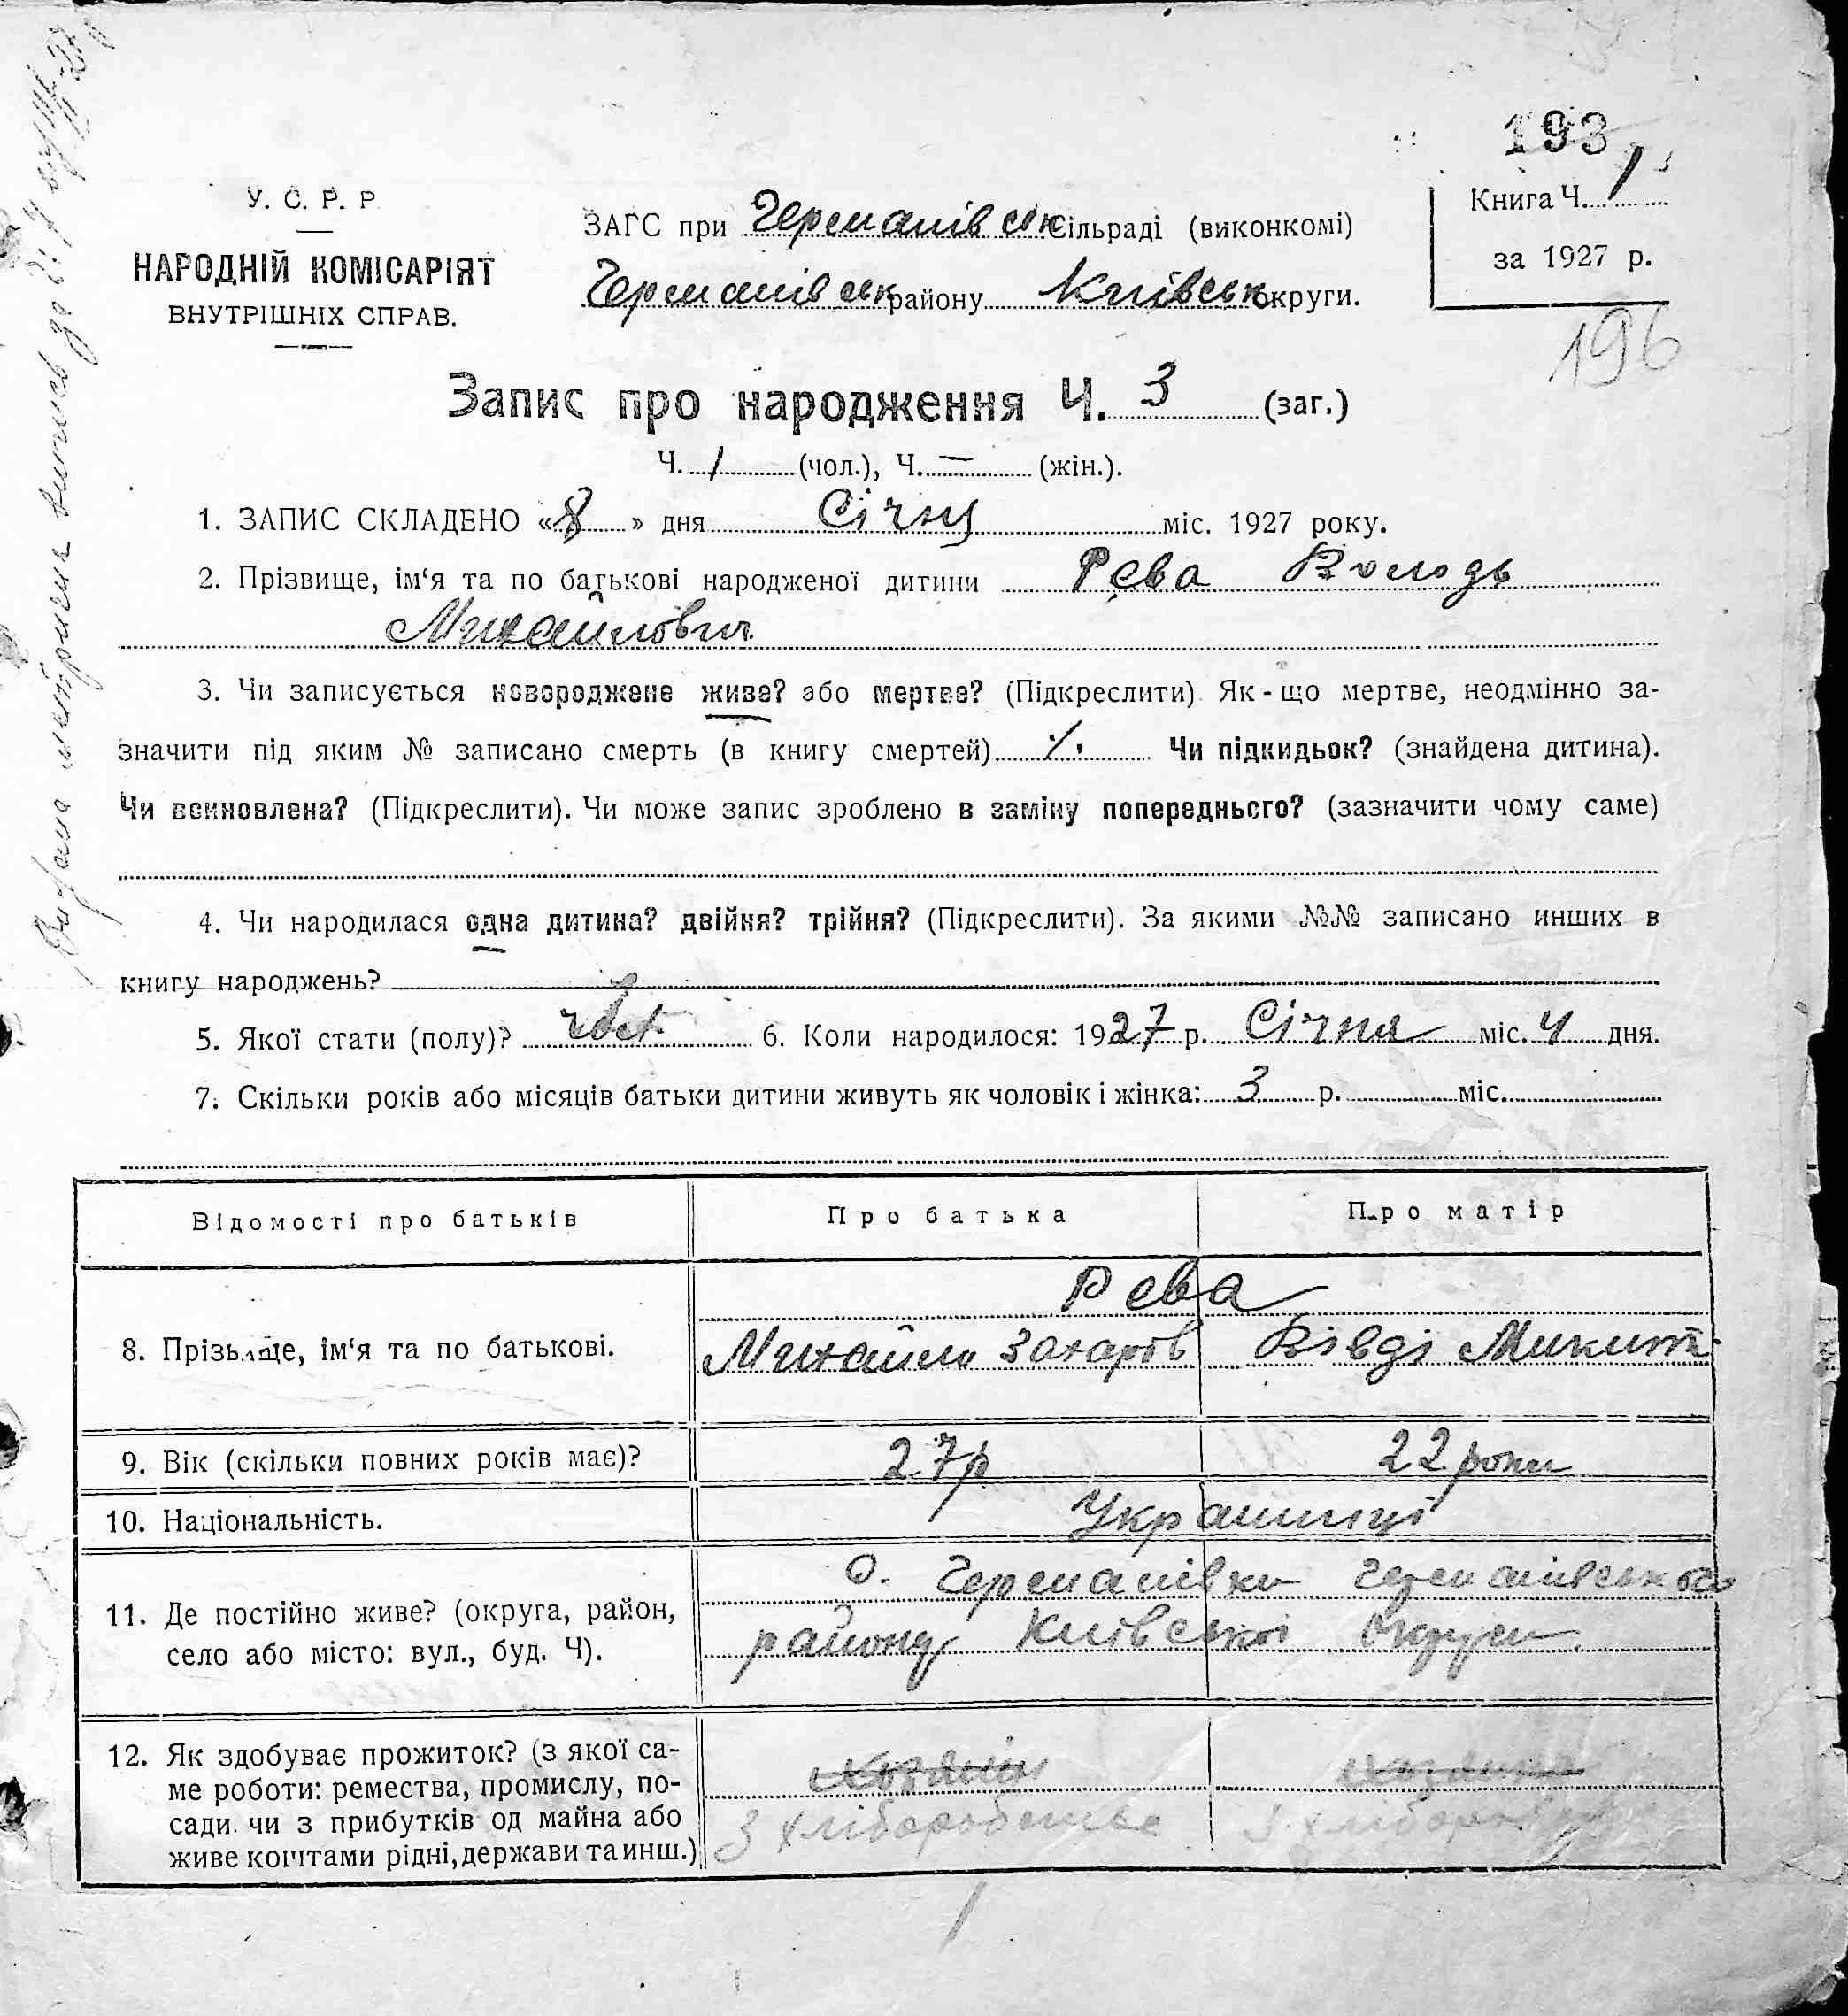 193
У. С. Р. Р
НАРОДНІЙ КОМІСАРІЯТ
ВНУТРІШНІХ СПРАВ.
ЗАГС при Германівськ сільраді (виконкомі)
Германівськ району Київськ округи.
Книга Ч. 1
за 1927 р.
196
Запис про народження Ч. 3 (заг.)
Ч. 1 (чол.), Ч. — (жін.).
1. ЗАПИС СКЛАДЕНО «8» дня Січня міс. 1927 року.
2. Прізвище, ім‘я та по батькові народженої дитини Рева Володь
Михайлович
3. Чи записується новороджене живе? або мертве? (Підкреслити) Як-що мертве, неодмінно за-
значити під яким № записано смерть (в книгу смертей) ·/· Чи підкидьок? (знайдена дитина).
Чи всиновлена? (Підкреслити). Чи може запис зроблено в заміну попереднього? (зазначити чому саме)
4. Чи народилася одна дитина? двійня? трійня? (Підкреслити). За якими №№ записано инших в
книгу народжень?
5. Якої стати (полу)? 6. Коли народилося: 1927 р. Січня міс. 4 дня.
7. Скільки років або місяців батьки дитини живуть як чоловік і жінка: 3 р. міс.
Відомості про батьків Про батька Про матір
Рева
8. Прізвище, ім‘я та по батькові. Михайло Захаров Вівді Микит
9. Вік (скільки повних років має)? 27р 22 роки
10. Національність. Українці
11. Де постійно живе? (округа, район,
село або місто: вул., буд. Ч).
с. Германівки Германівського
району Київської округи
12. Як здобуває прожиток? (з якої са-
ме роботи: ремества, промислу, по-
сади. чи з прибутків од майна або
живе коштами рідні, держави та инш.)
З хліборобства З хлібороб